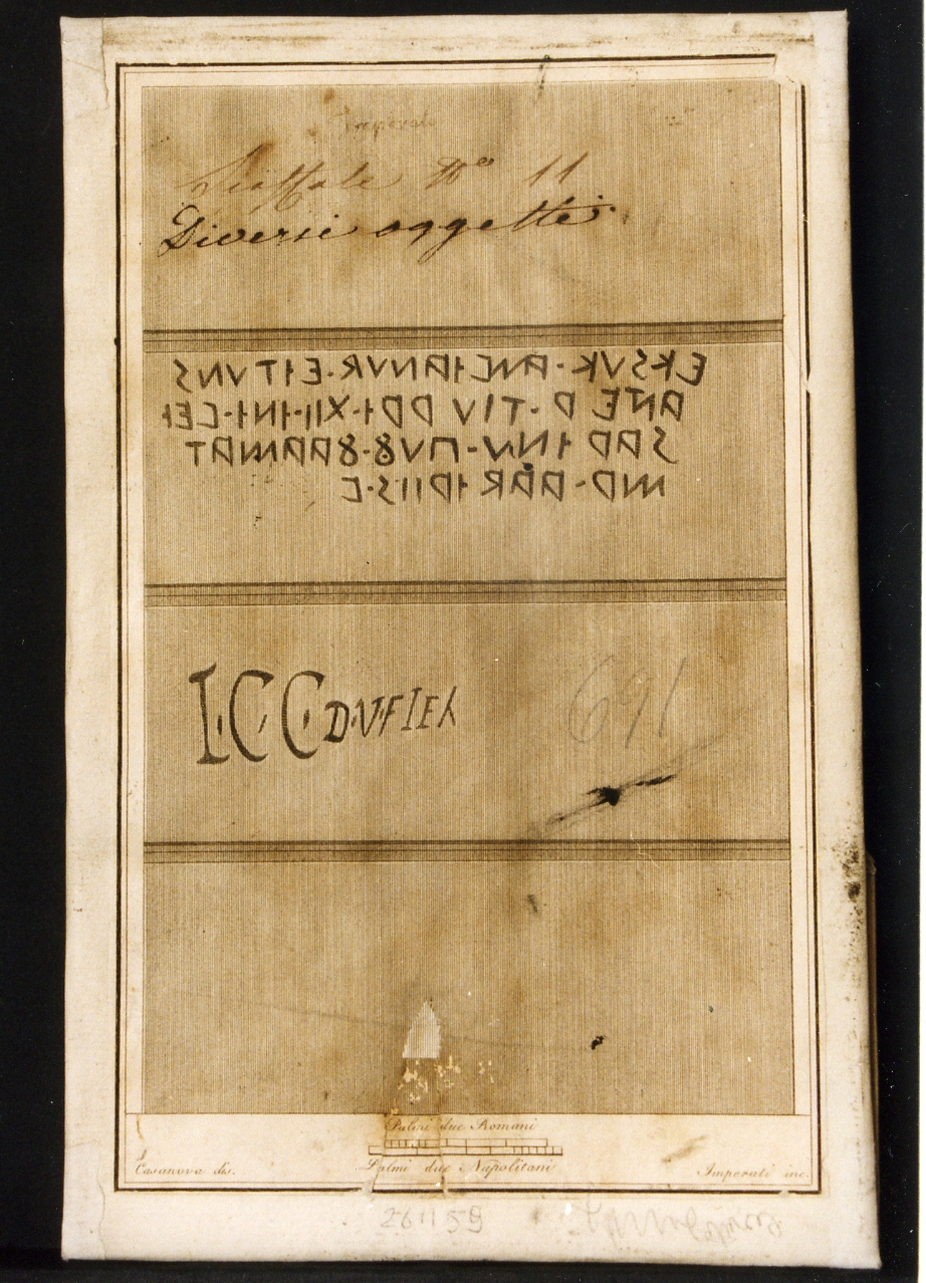 Scaffale N.º 11
Diversi oggetti
EKSVK·AMCIANVR·EITVNS
ANTED·TIVDDI·XII·INI·CEI
SADINV·ПV8·8AAMAT
MD·AARIDIIS·C
I.C.C.D.V.F IEK
691
Palmi due Romani
Palmi due Napolitani
Casanova dis.
Imperato inc.
261159